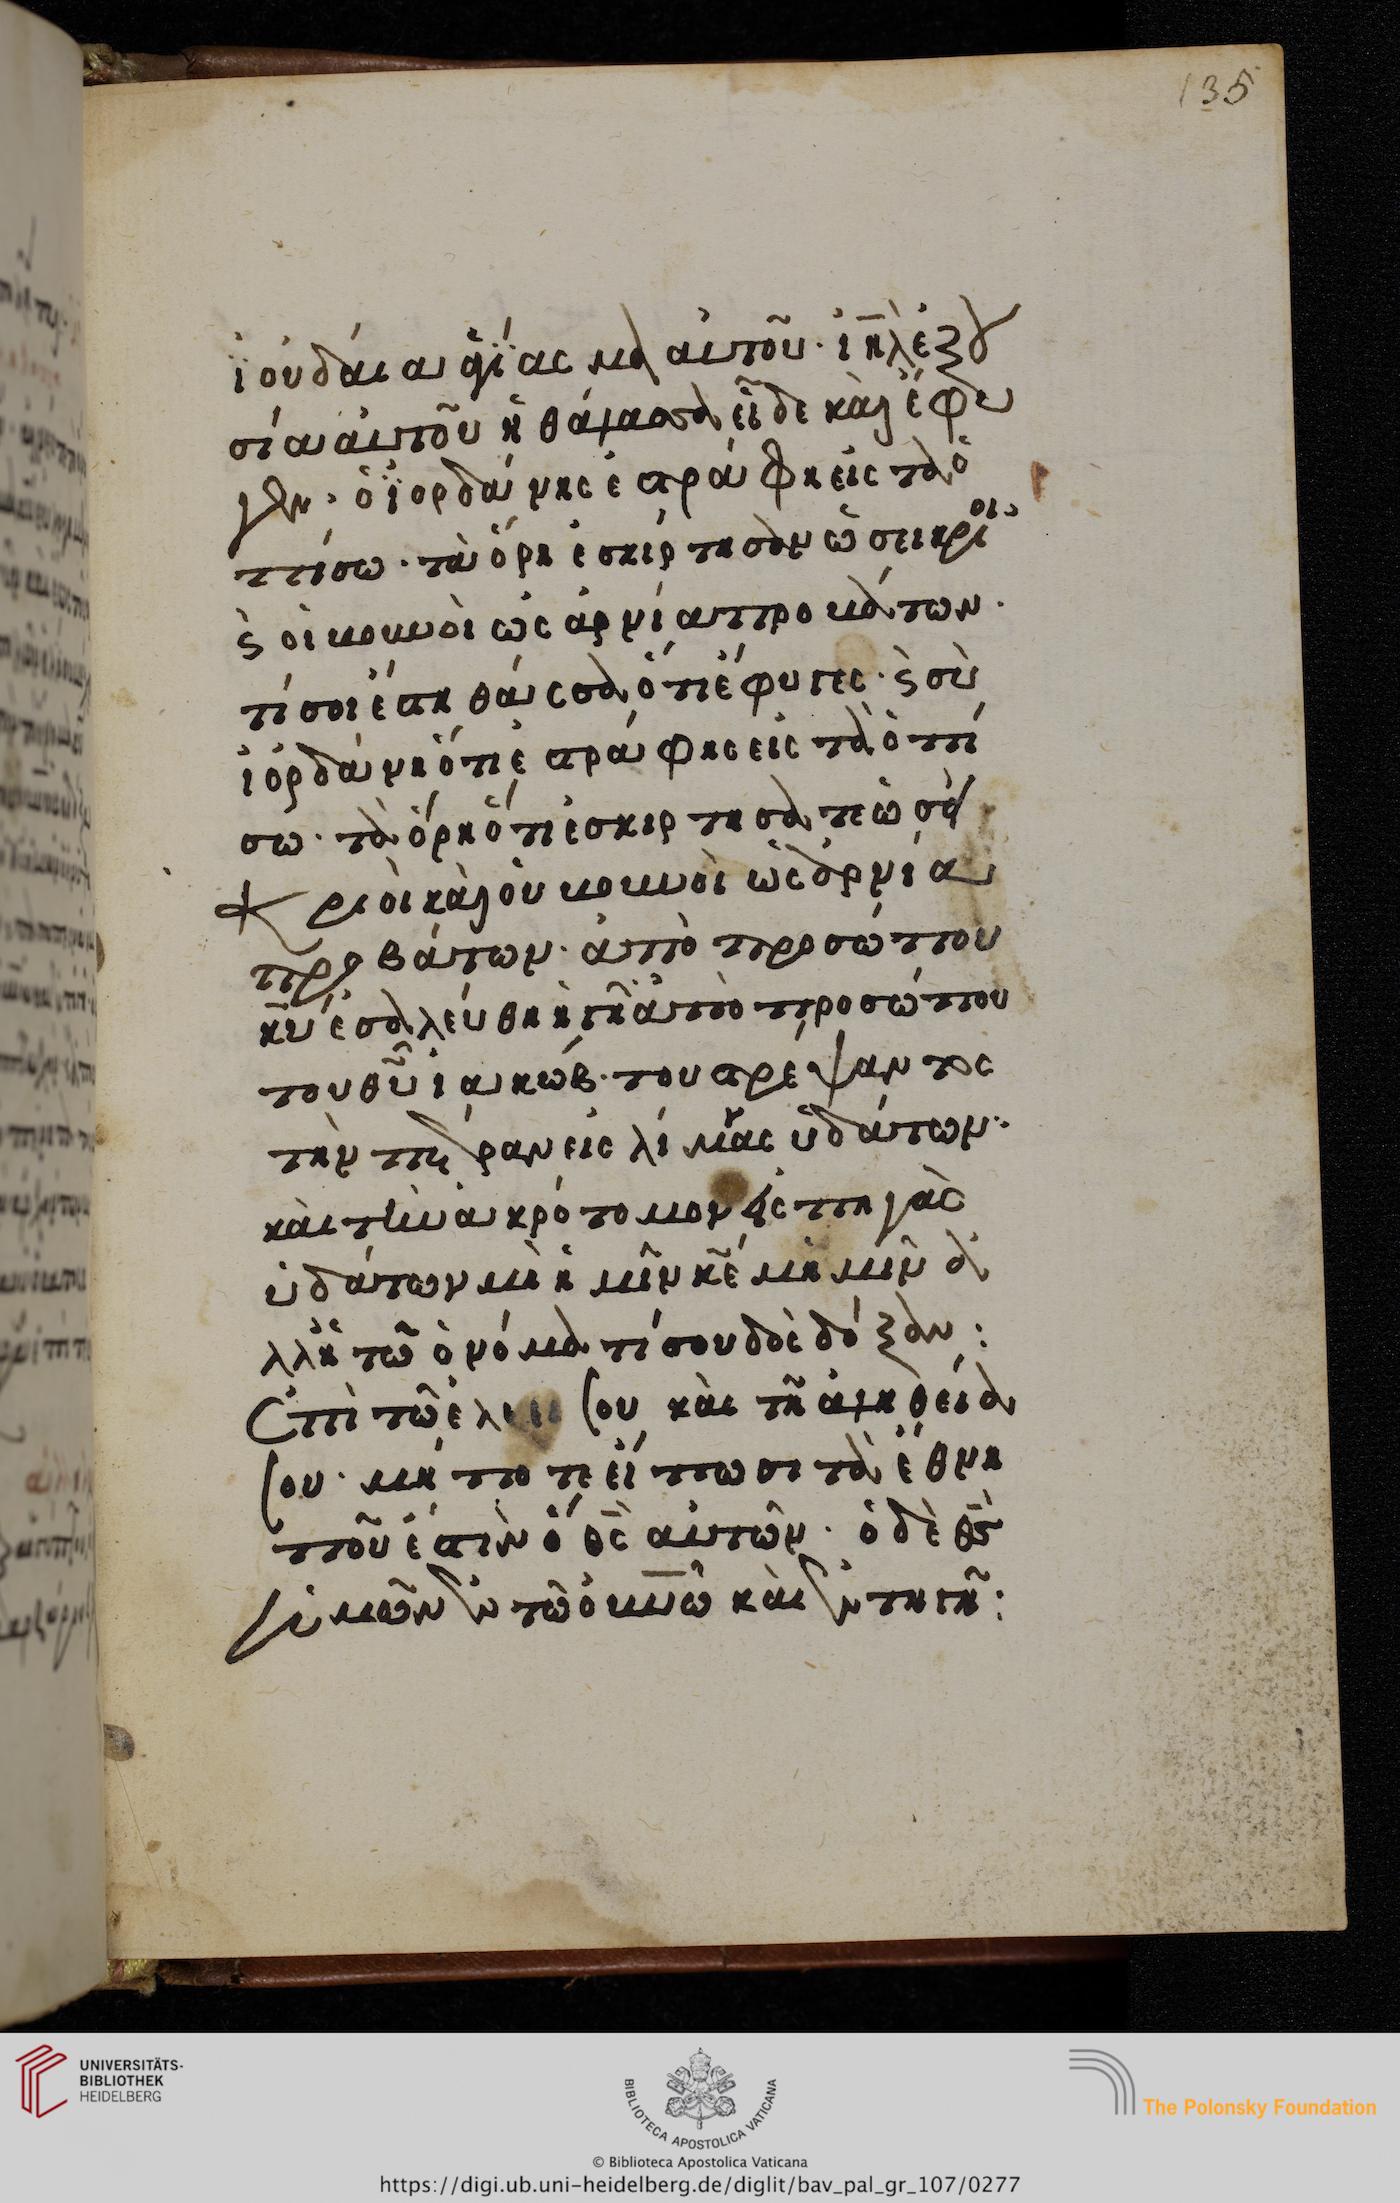 135
ϊουδαία ἁγΐασμα αὐτοῦ· ἰηλ̀ ἐξου
σία αὐτοῦ ἡ θάλασσα εἶδε καὶ ἔφυ
γεν· ὁ ϊορδάνης ἐστράφη εἰς τὰ ὀ
πίσω· τὰ ὄρη ἐσκίρτησαν ὡσεὶ κριοὶ
ϛ οἱ βουνοὶ ὡς ἀρνία προβάτων·
τί σοι ἔστι θάλασσα ὅτι ἔφυγες· ϛ σὺ
ἰορδάνη ὅτι ἐστράφης εἰς τὰ ὀπί
σω· τὰ ὄρη ὅτι ἐσκιρτήσατε ὡσεὶ
κριοὶ καὶ οὑ βουνοὶ ὡς ἀρνία
προβάτων· ἀπὸ προσώπου
κῦ ἐσαλεύθη ἡ γῆ ἀπὸ προσώπου
του θῦ ἰακώβ· του στρέψαντος
τὴν πέτραν εἰς λίμνας ὑδάτων·
καὶ τὴν ἀκρότομον εἰς πηγὰς
ὑδάτων μὴ ἡμῖν κε μὴ ἡμῖν ἀ
λλ' ἢ τῶ ὀνόματί σου δὸς δόξαν:
Ἐπὶ τῶ ἐλέει σου καὶ τῆ ἀληθεία
σου· μή ποτε εἴπωσι τὰ ἔθνη
ποῦ ἐστὶν ὁ θς αὐτῶν· ὁ δὲ θς
ἡμῶν ἐν τῶ οὐνῶ καὶ ἐν τη γῆ:
UNIVERSITÄTS-
BIBLIOTHEK
HEIDELBERG
BIBLIOTECA APOSTOLICA VATICANA
The Polonsky Foundation
© Biblioteca Apostolica Vaticana
https://digi.ub.uni-heidelberg.de/diglit/bav_pal_gr_107/0277